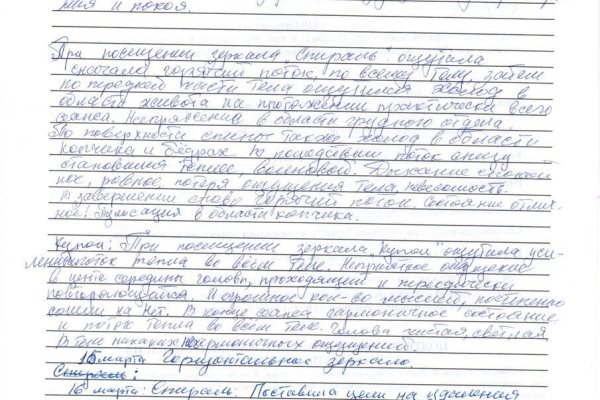 ния и покоя.
При посещении зеркала "Спираль" ощутила
сначала горячий поток, по всему телу, затем
по передней части тела ощущался холод в
области живота на протяжении практически всего
сеанса. Напряжение в области грудного отдела.
По поверхности спины также холод в области
копчика и бедрах. В последствии поток снизу
становился теплее, волновой. Дыхание спокой
ное, ровное, потеря ощущения тела, невесомость.
В завершении снова горячий поток. Состояние отлич-
ное. Пульсация в области копчика.
Купол: При посещении зеркала "Купол" ощутила уси-
ление поток тепла во всём теле. Неприятное ощущение
в центре середины головы, проходящий и периодически
повторяющийся. И огромное кол-во мыслей, постепенно
сошли на нет. В конце сеанса гармоничное состояние
и поток тепла во всём теле. Голова чистая, светлая,
в теле никаких негармоничных ощущений.
15 марта Горизонтальное зеркало.
Спираль:
16 марта: Спираль. Поставила цели на удаления